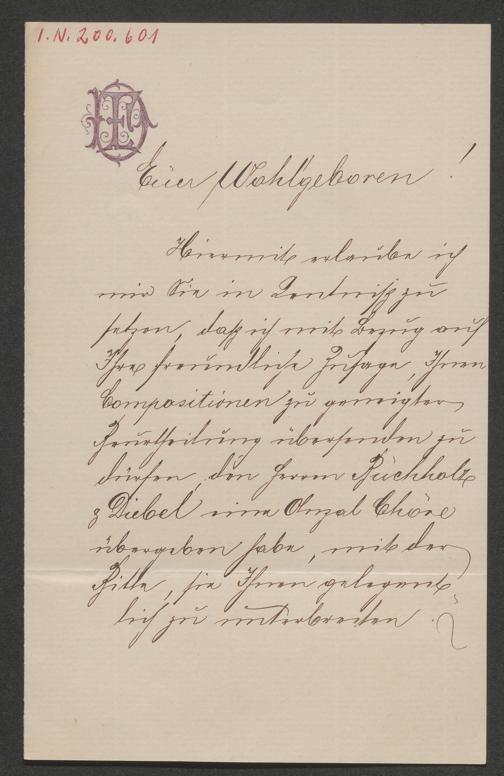 I.N. 200.601
Euer Wohlgeboren!
Hiermit erlaube ich
mir Sie in Kentniß zu
setzen, daß ich mit Bezug auf
Ihre freundliche Zusage, Ihnen
Compositionen zu geneigter
Beurtheilung übersenden zu
dürfen, den Herrn Buchholz
& Diebel eine Anzal Chöre
übergeben habe, mit der
Bitte, sie Ihnen gelegent
lich zu unterbreiten.